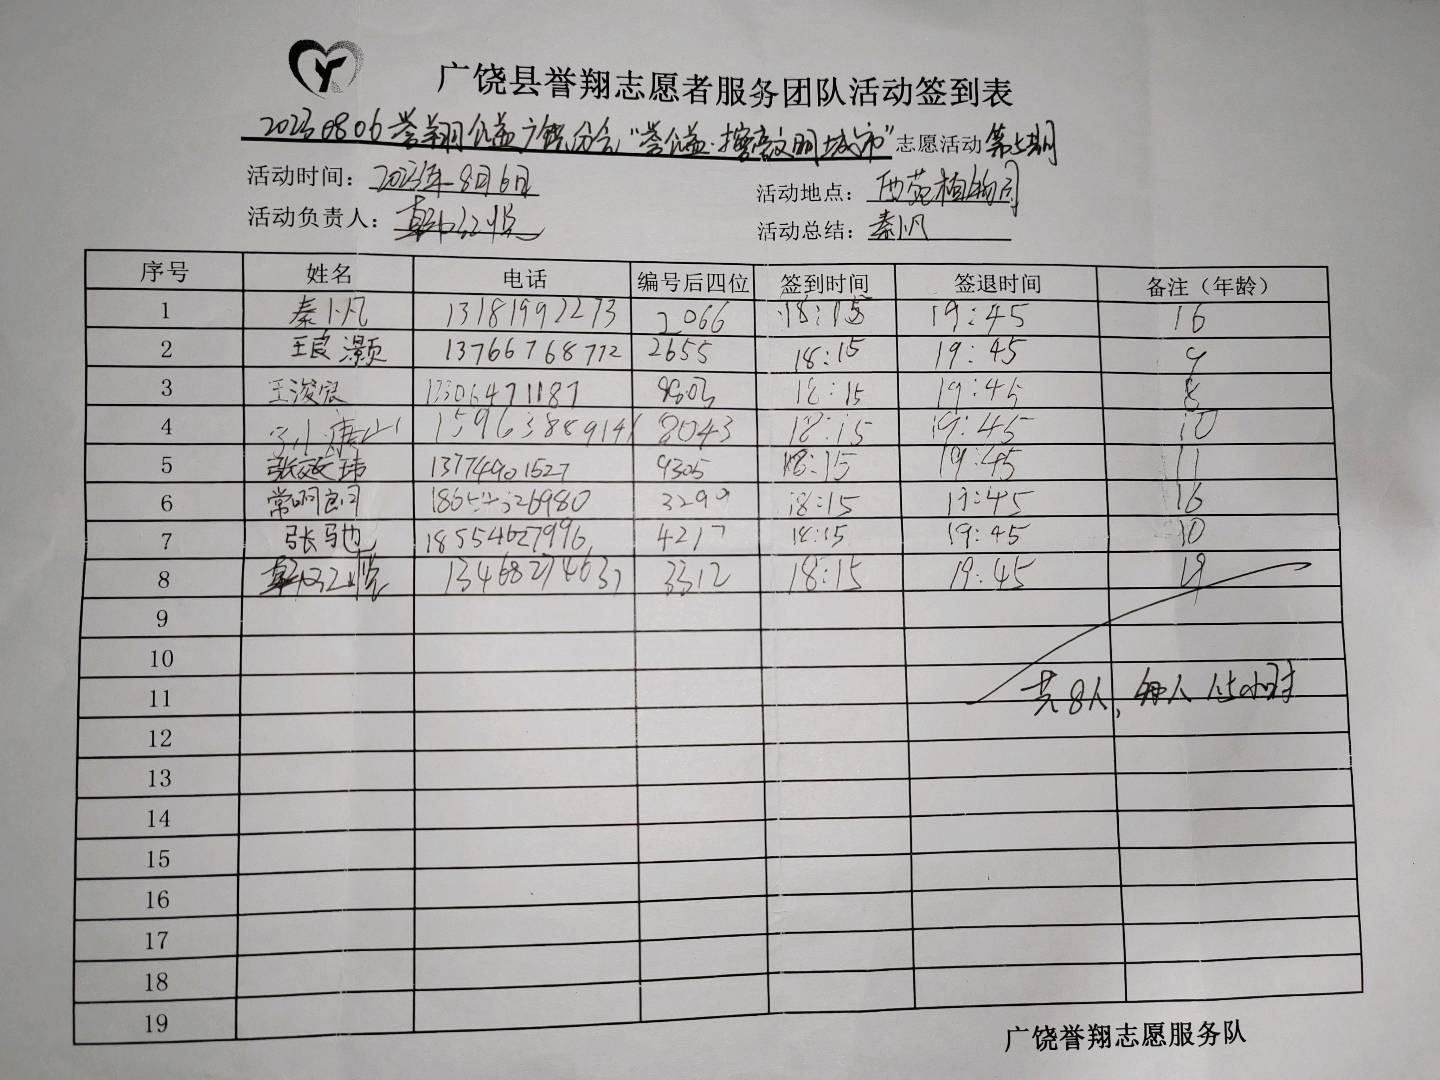 广饶县誉翔志愿者服务团队活动签到表
20230806誉翔公益广饶分会“誉公益·擦亮文明城市”志愿活动第七期
活动时间：2023年8月6日 活动地点：西苑植物园
活动负责人： 活动总结：秦小凡
序号 姓名 电话 编号后四位 签到时间 签退时间 备注（年龄）
1 秦小凡 13181992273 2066 18:15 19:45 16
2 王良灏 13766768772 2655 18:15 19:45 9
3 王浚宸 13306471187 18:15 19:45 8
4 15963889141 2043 18:15 19:45 10
5 张奕玮 13774901527 9305 18:15 19:45 11
6 常 3299 18:15 19:45 16
7 张驰 18554627996 4217 18:15 19:45 10
8 13468274637 3312 18:15 19:45 19
9
10
11 共8人，每人1.5小时
12
13
14
15
16
17
18
19
广饶誉翔志愿服务队